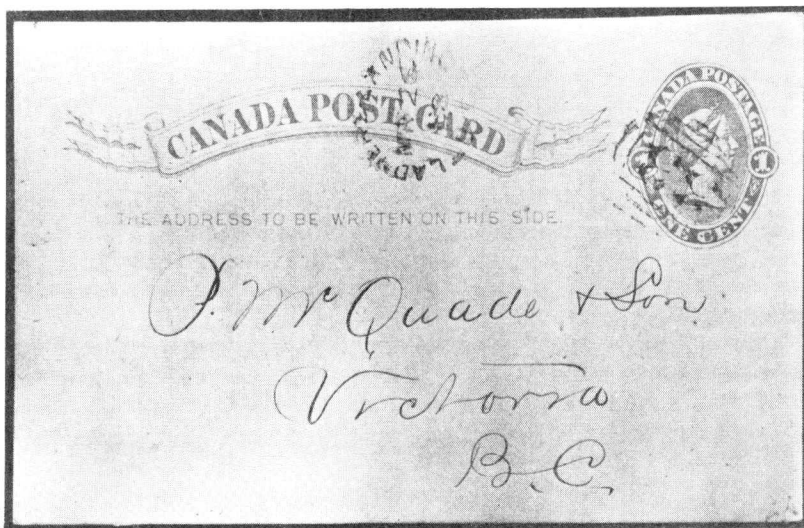 CANADA POST CARD
CANADA POSTAGE
1
ONE CENT
THE ADDRESS TO BE WRITTEN ON THIS SIDE.
P. Mc Quade & Son
Victoria
B.C.